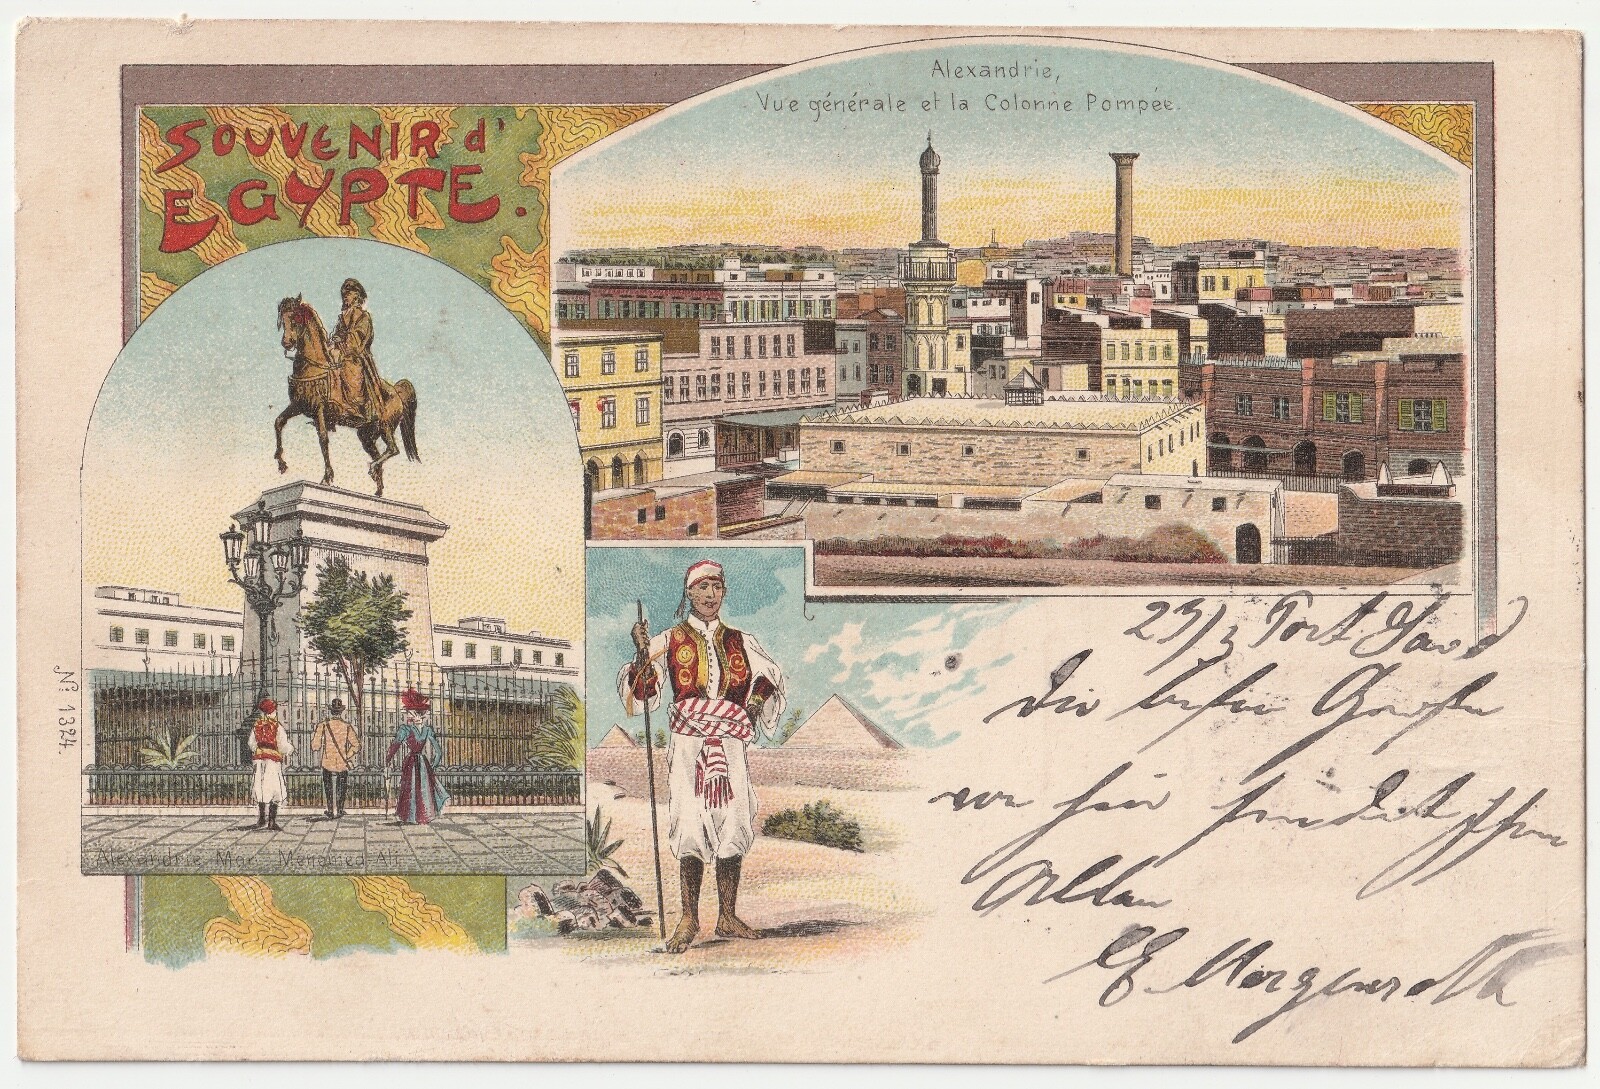 SOUVENIR d'
EGYPTE.
Alexandrie,
Vue générale et la Colonne Pompée.
Alexandrie, Mohamed Ali.
Nº 1324.
23/3 Port Said
Die besten Grüße
von hier sendet Ihnen
Allen
E. Morgenroth